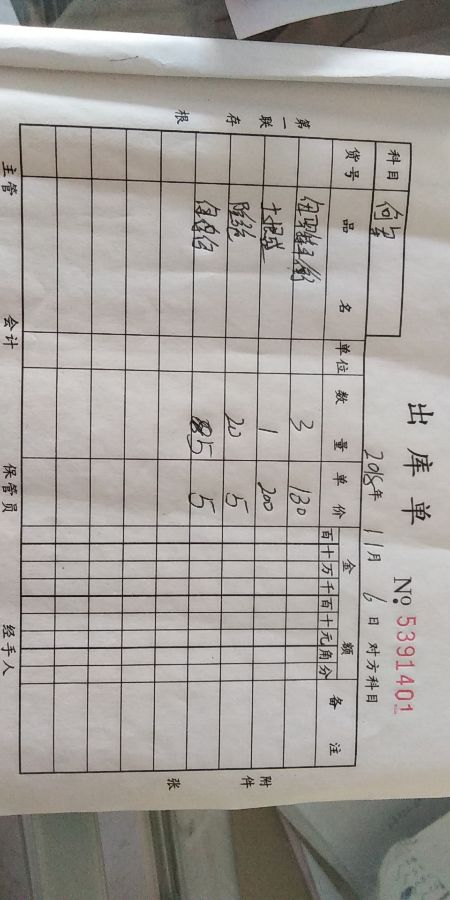 出库单
No. 5391401
2018年 11月 6日 对方科目
科目
货号 品名 单位 数量 单价 金额 备注
百十万千百十元角分
3 130
1 200
20 5
5 5
第一联 存根
附件 张
主管 会计 保管员 经手人